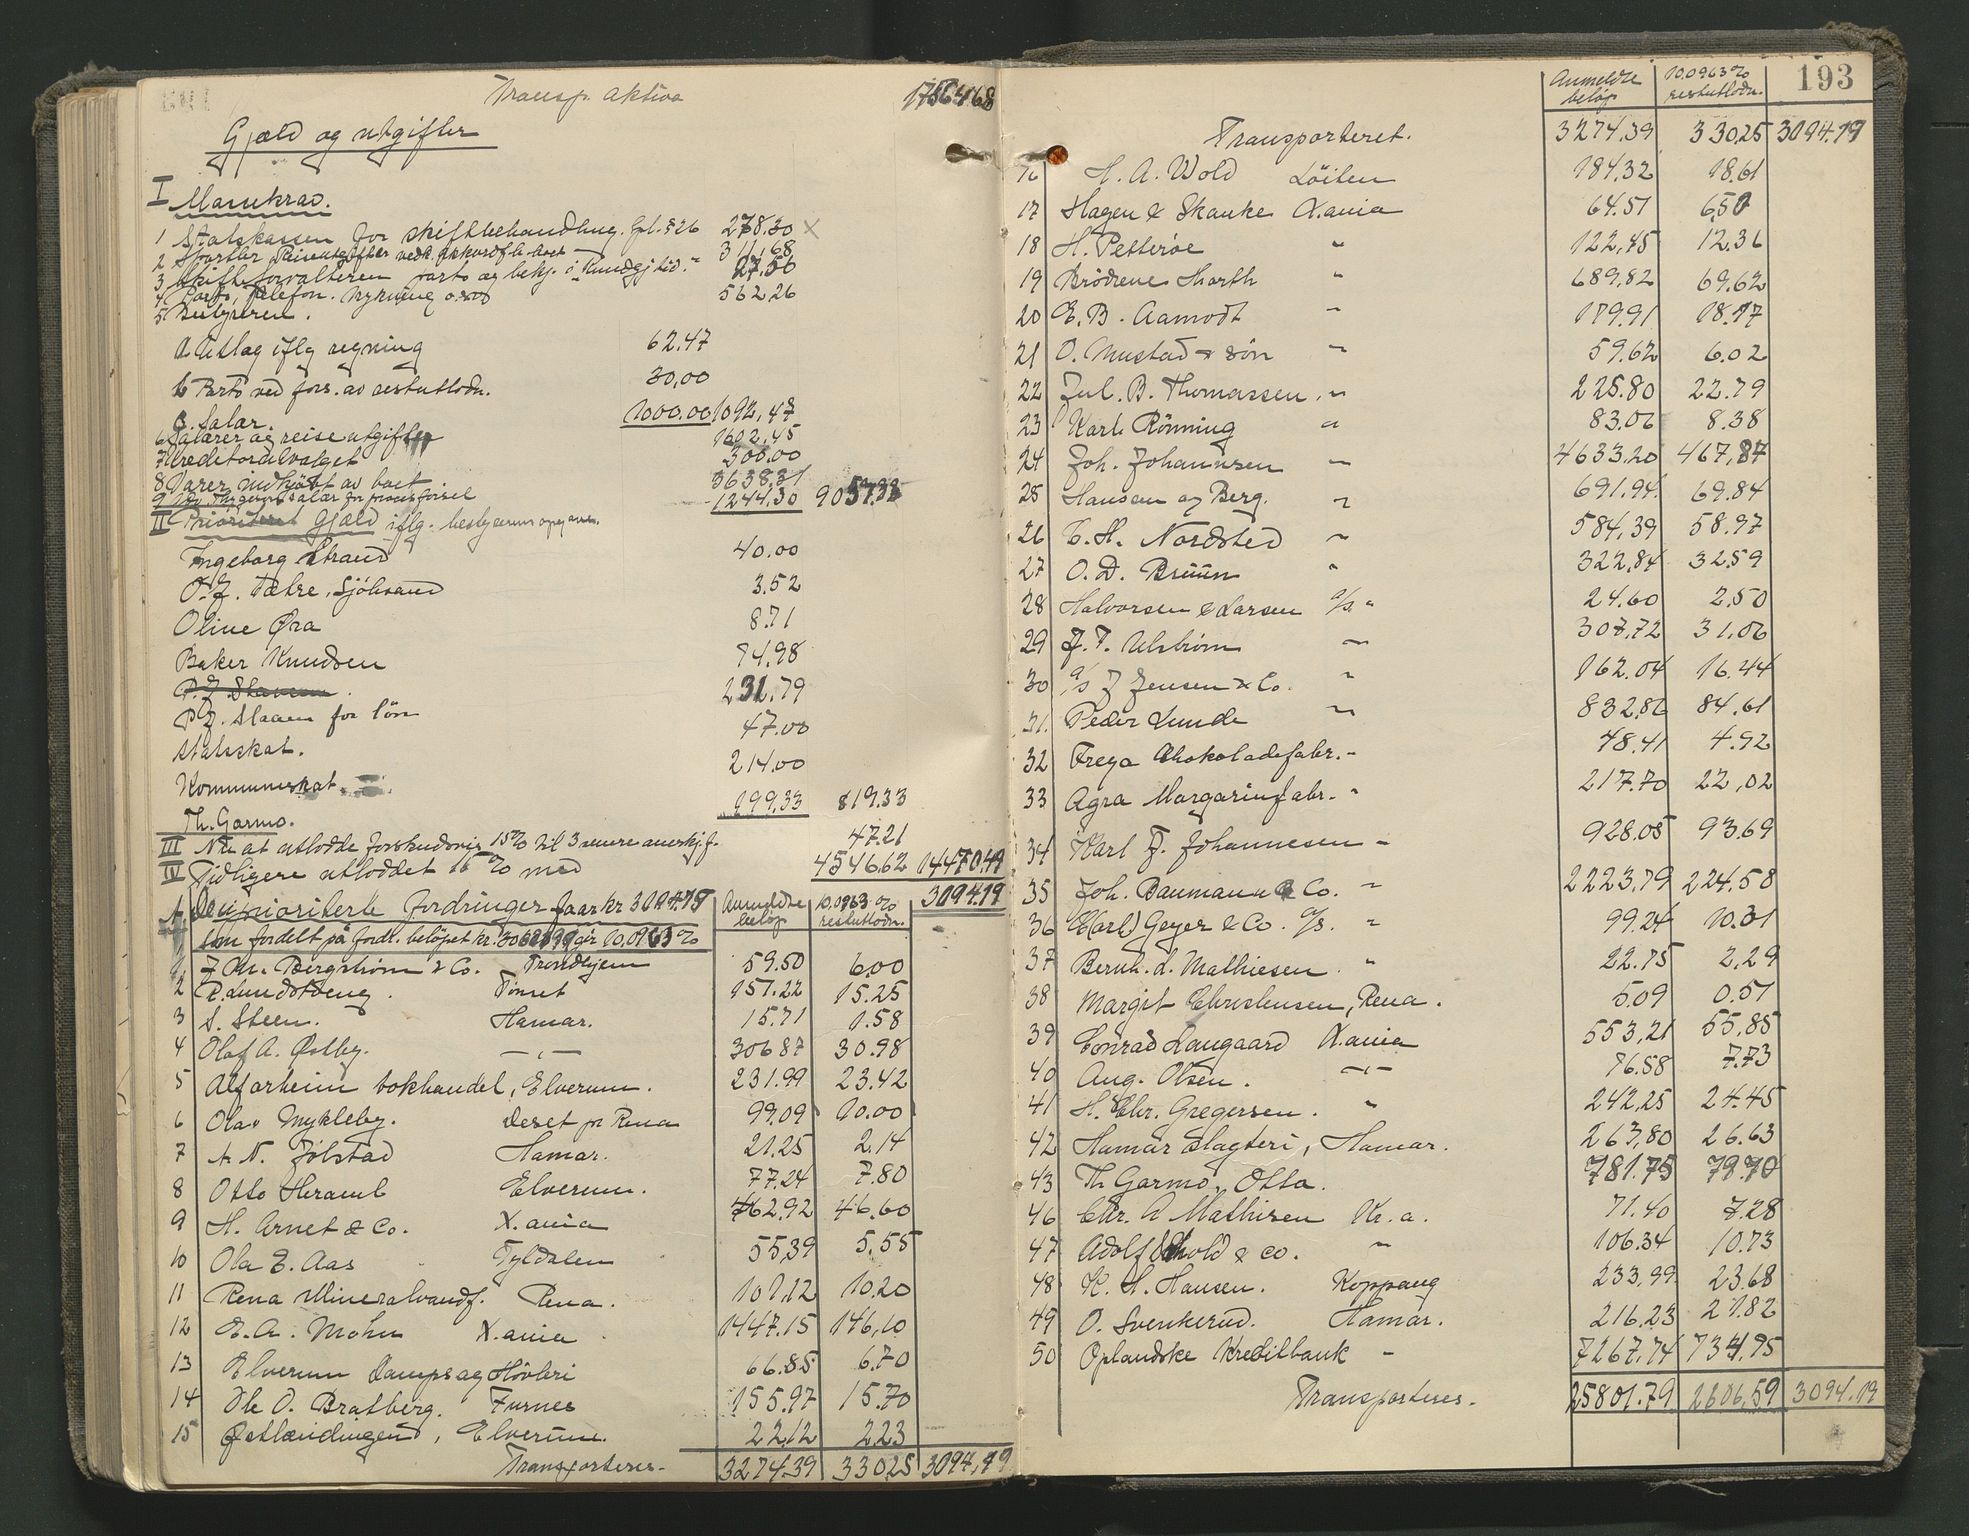 Transp. aktiva 17564.68
Gjæld og utgifter
I Massekrav.
1 Statskassen for skiftebehandling. Gpl. § 26 278.30 ×
2 Sportler, Reiseutgifter vedk. akkordfh. boet 311,68
3 Skifteforvalteren porto og bekj. i Kundgj.tid. 27,50
4 Porto, telefon. 562,26
5 Bestyreren.
a Utlæg iflg regning 62.47
b Porto ved fors. av restutlodn. 30,00
c. Salær. 1000.00 1092,47
6 Salærer og reiseutgifter 1602,45
7 Kreditorutvalget 300.00
8 Varer indkjøbt av boet 3638,31
9 salær for 1244,30 9057.33
II Prioritert Gjæld iflg. bestyrerens opgave.
Ingeborg Strand 40.00
O. J. Tæhre, Sjølisand 3.52
Oline Øra 8.71
Baker Knudsen 74.98
P. J. Slaaen for løn 231.79
Statsskat. 47.00
Kommuneskat. 214.00
Th. Garmo. 199,33 819.33
III Nu at utlodde forskudsvis 15% til 3 senere anerkj. f. 47.21
IV Tidligere utloddet 15% med 4546.62 14470.49
3094.19
Anmeldte beløp 10,0963% restutlodn.
Uprioriterte fordringer faar kr 3094.19
som fordelt på fordr. beløpet kr. gir 10,0963%
1 J. M. Bergstrøm & Co. Trondhjem 59.50 6.00
2 P. Lundstveng. Tønset 151.22 15.25
3 S. Steen. Hamar. 15.71 1.58
4 Olaf A. Østby. —"— 306 87 30.98
5 Alfarheim bokhandel, Elverum. 231.99 23.42
6 Olav Mykleby. Deset pr Rena 99,09 10.00
7 A. N. Jølstad Hamar. 21.25 2.14
8 Otto Hramb Elverum. 77.24 7.80
9 H. Arnet & Co. X.ania 462,92 46.60
10 Ola E. Aas Tyldalen 55,39 5,55
11 Rena Mineralvandf. Rena. 101,12 10.20
12 E. A. Mohn X.ania 1447.15 146,10
13 Elverum Dampsag Høvleri 66.85 6.70
14 Ole O. Bratberg. Furnes 155.97 15.70
15 Østlændingen, Elverum. 22,12 223
Transporteres. 3274.39 330,25 3094,19
193
Anmeldte beløp 10,0963% restutlodn.
Transporteret. 3274,39 330,25 3094.19
16 H. A. Wold Løiten 184,32 18.61
17 Hagen & Skanke X.ania 64.51 6,50
18 H. Petterøe " 122,45 12,36
19 Brødrene Harth " 689,82 69.62
20 E. B. Aamodt " 179.91 18.17
21 O. Mustad & søn " 59.62 6.02
22 Jul. B. Thomassen " 225.80 22.79
23 Karl Rønning " 83.06 8.38
24 Joh. Johannsen " 4633,20 467,87
25 Hansen og Berg. " 691.94 69.84
26 C. H. Nordsted " 584,39 58.97
27 O. D. Bruun " 322,84 32.59
28 Halvorsen & Larsen A/S. " 24.60 2,50
29 J. T. Ulstrøm " 307,72 31,06
30 A/S J Jensen & Co. " 162.04 16.44
31. Peder Lunde " 832,86 84.61
32 Freya Chokoladefabr. " 48.41 4.92
33 Agra Margarinfabr. " 217.70 22,02
34 Karl F. Johannesen " 928.05 93.69
35 Joh. Baumann & Co. " 2223,79 224.58
36 E(arl) Geyer & Co. A/S. " 99.24 10.01
37 Bernh. L. Mathiesen. " 22.75 2,29
38 Margit Christensen, Rena. 5.09 0.51
39 Conrad Langaard X.ania 553,21 55,85
40 Aug. Olsen. —"— 76.58 7.73
41 H. Chr. Gregersen. " 242,25 24.45
42 Hamar Slagteri, Hamar. 263,80 26.63
43 Th Garmo, Otta. 781.75 79.70
46 Chr. A Mathisen Kr.a. 71.40 7.28
47 Adolf Schold & co. " 106.34 10.73
48 K. H. Hansen. Koppang 233,99 23,68
49 O. Svenkerud. Hamar. 216.23 21.82
50 Oplandske Kreditbank " 7267,74 734,95
Transporteres. 25801.79 2606,59 3094.19